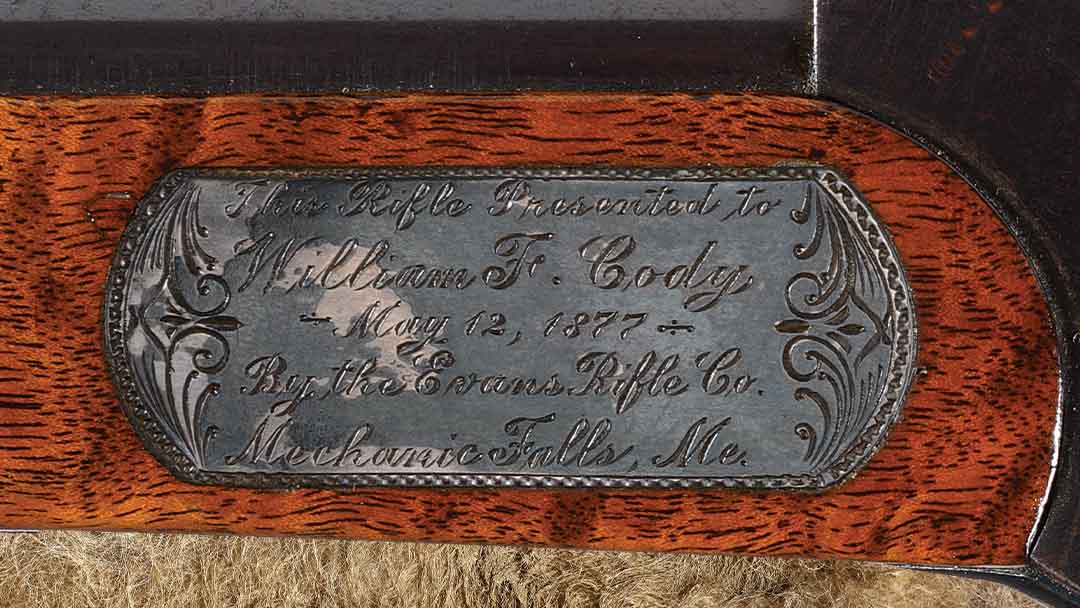 This Rifle Presented to
William F. Cody
May 12, 1877
By the Evans Rifle Co.
Mechanic Falls, Me.